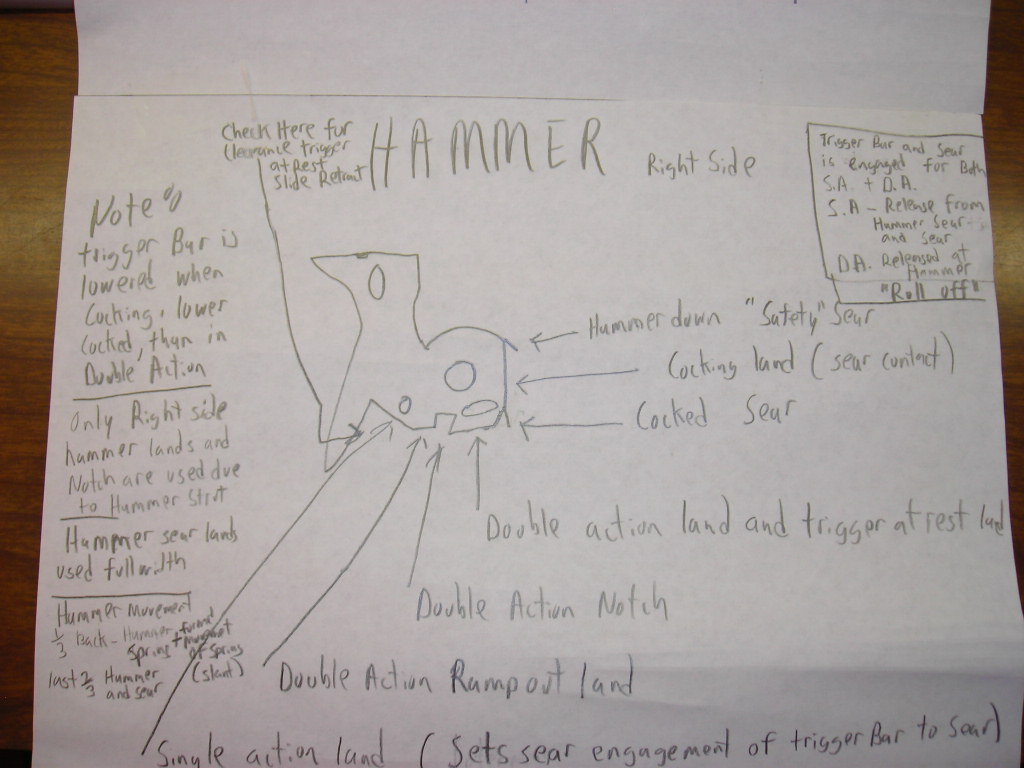 HAMMER
Right Side
Check Here for
Clearance trigger
at Rest
Slide Retract
Trigger Bar and Sear
is engaged for Both
S.A. + D.A.
S.A - Release from
Hammer Sear
and Sear
D.A. Released at
Hammer
"Roll off"
Note:
trigger Bar is
lowered when
Cocking, lower
Cocked, than in
Double Action
Only Right side
hammer lands and
Notch are used due
to Hammer Strut
Hammer sear lands
used full width
Hammer Movement
1/3 Back - Hammer
Spring + forward
movement
of spring
(slant)
last 2/3 Hammer
and sear
Hammer down "Safety" Sear
Cocking land (sear contact)
Cocked Sear
Double action land and trigger at rest land
Double Action Notch
Double Action Ramp out land
Single action land (Sets sear engagement of trigger Bar to Sear)